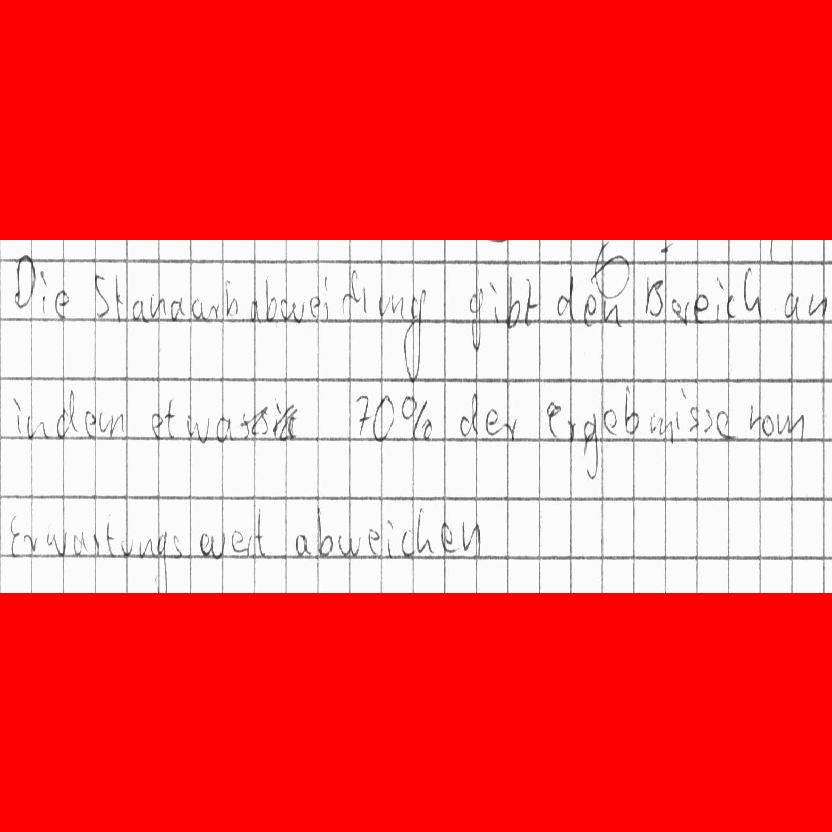 Die Standardabweichung gibt den Bereich an
indem etwa 70% der Ergebnisse vom
Erwartungswert abweichen